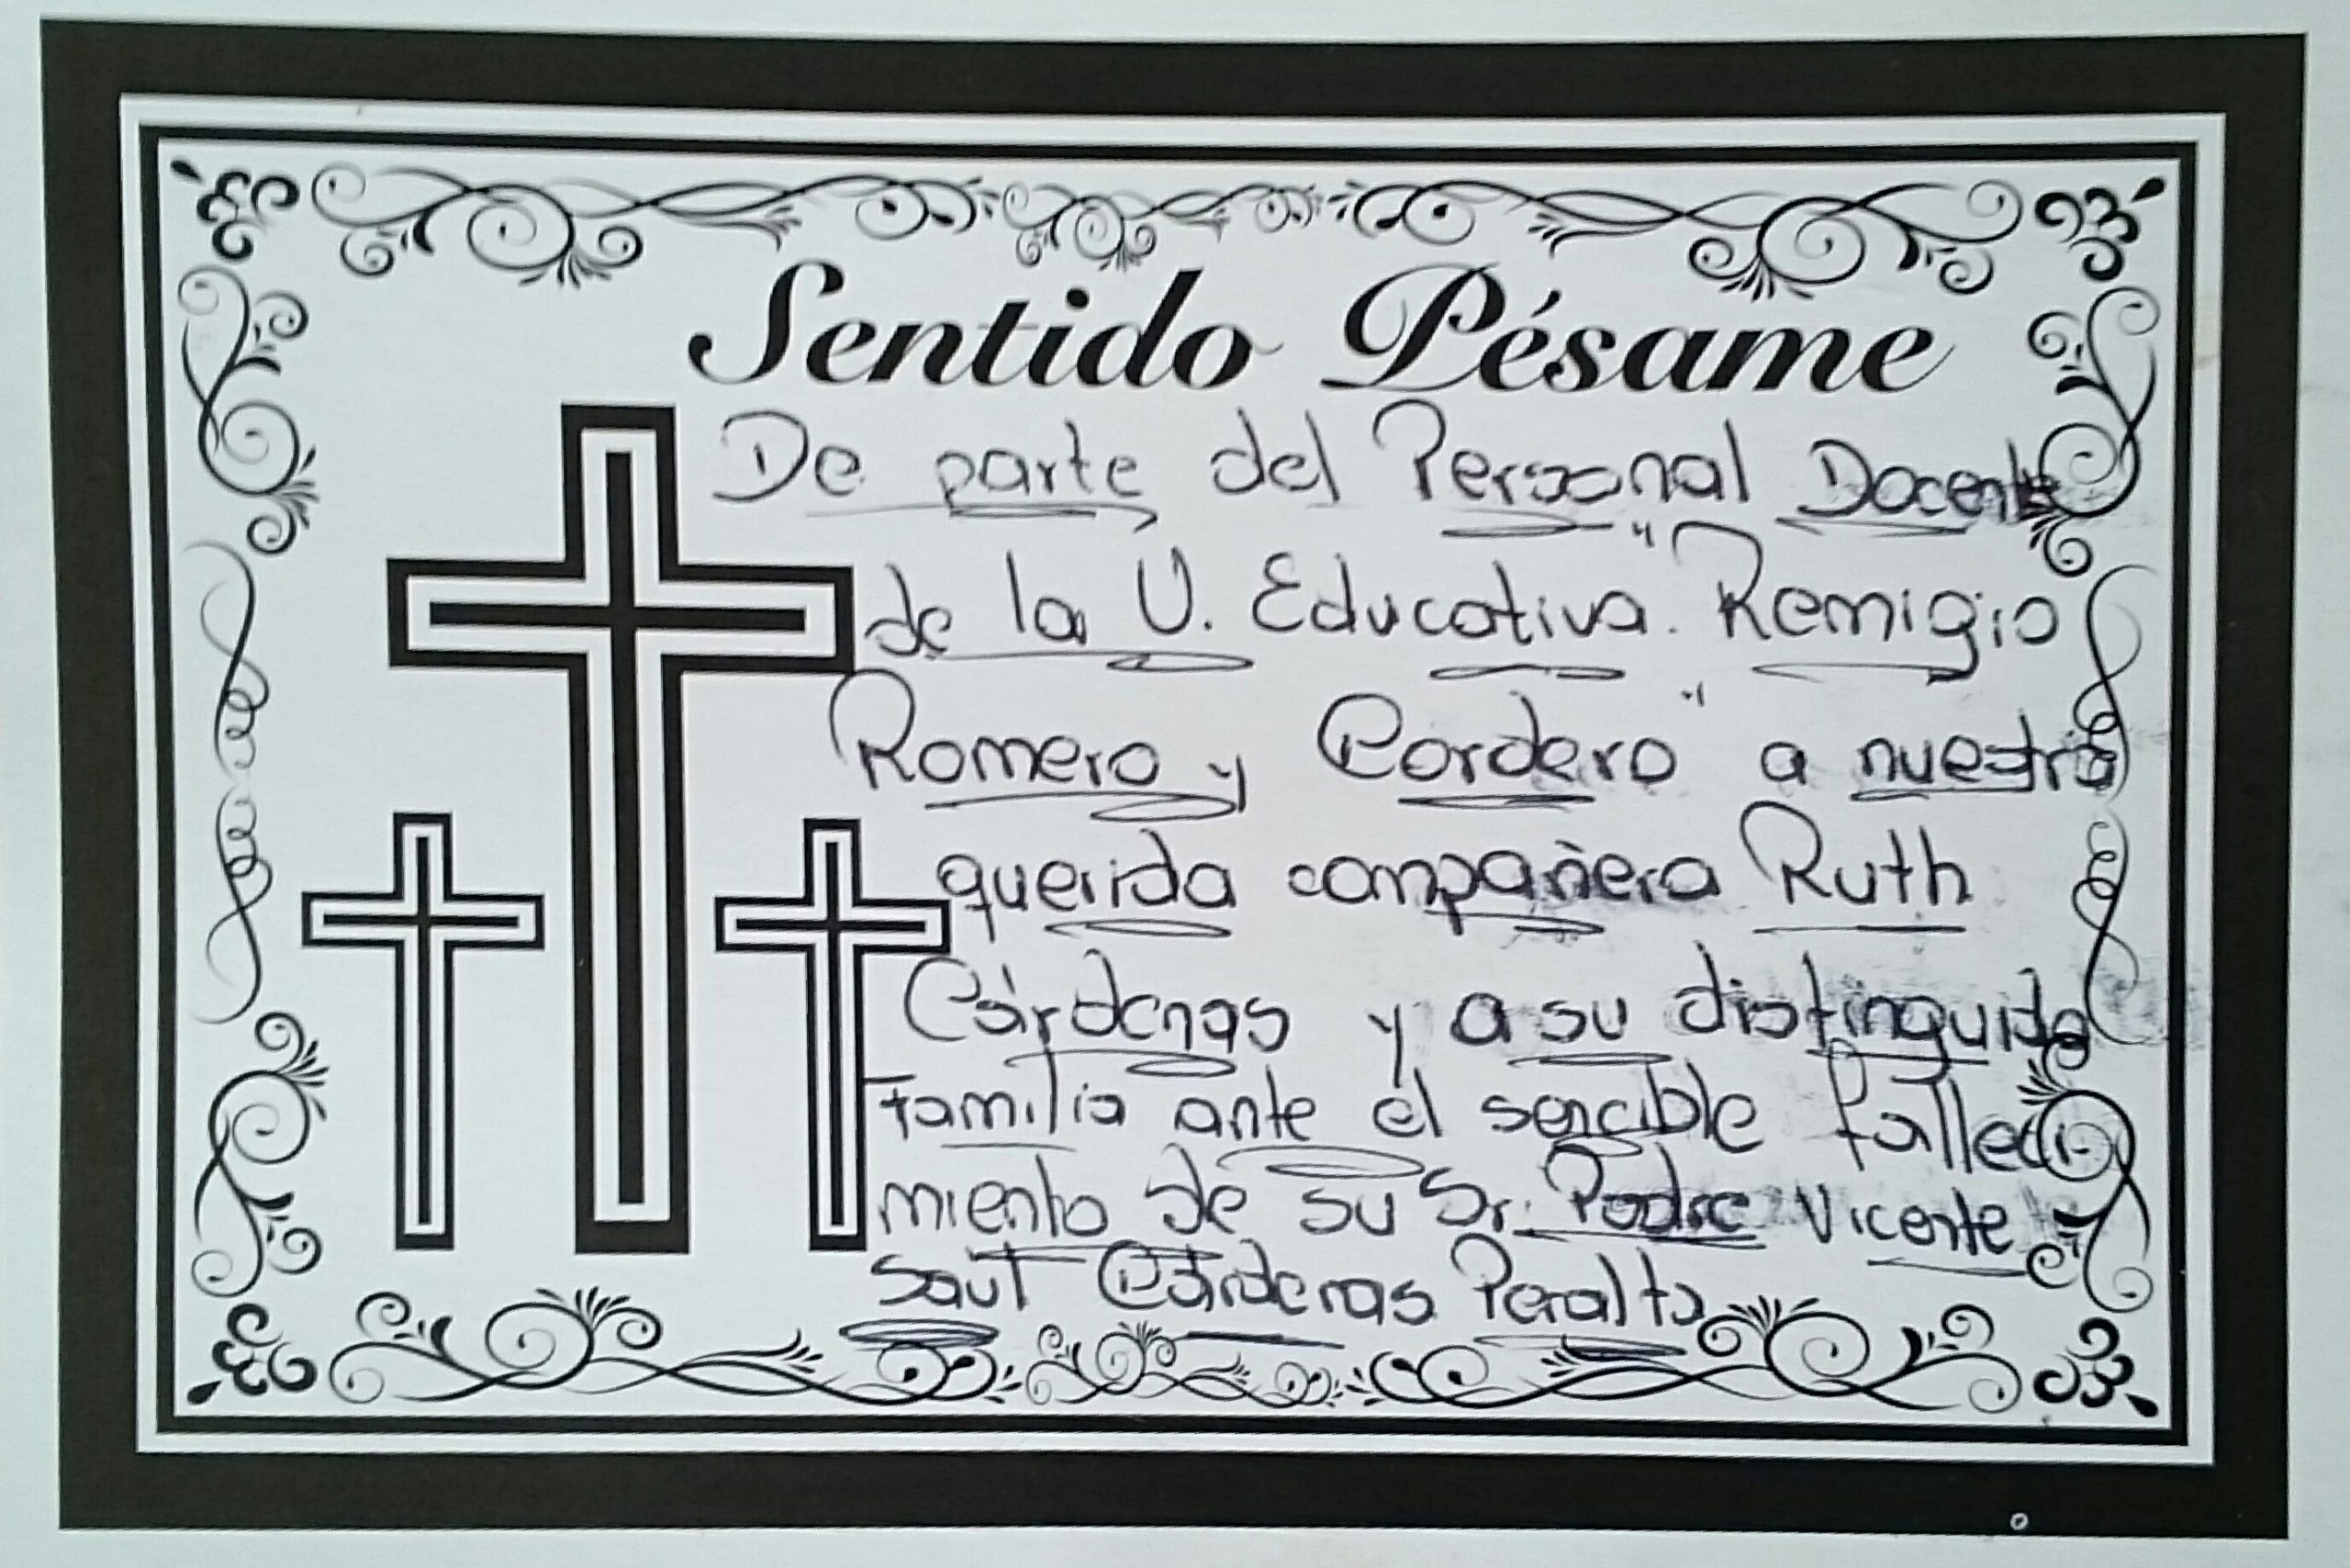 Sentido Pésame
De parte del Personal Docente
de la U. Educativa "Remigio
Romero y Cordero" a nuestra
querida compañera Ruth
Cárdenas y a su distinguida
familia ante el sencible falleci-
miento de su Sr. Padre Vicente
Saul Cárdenas Peralta